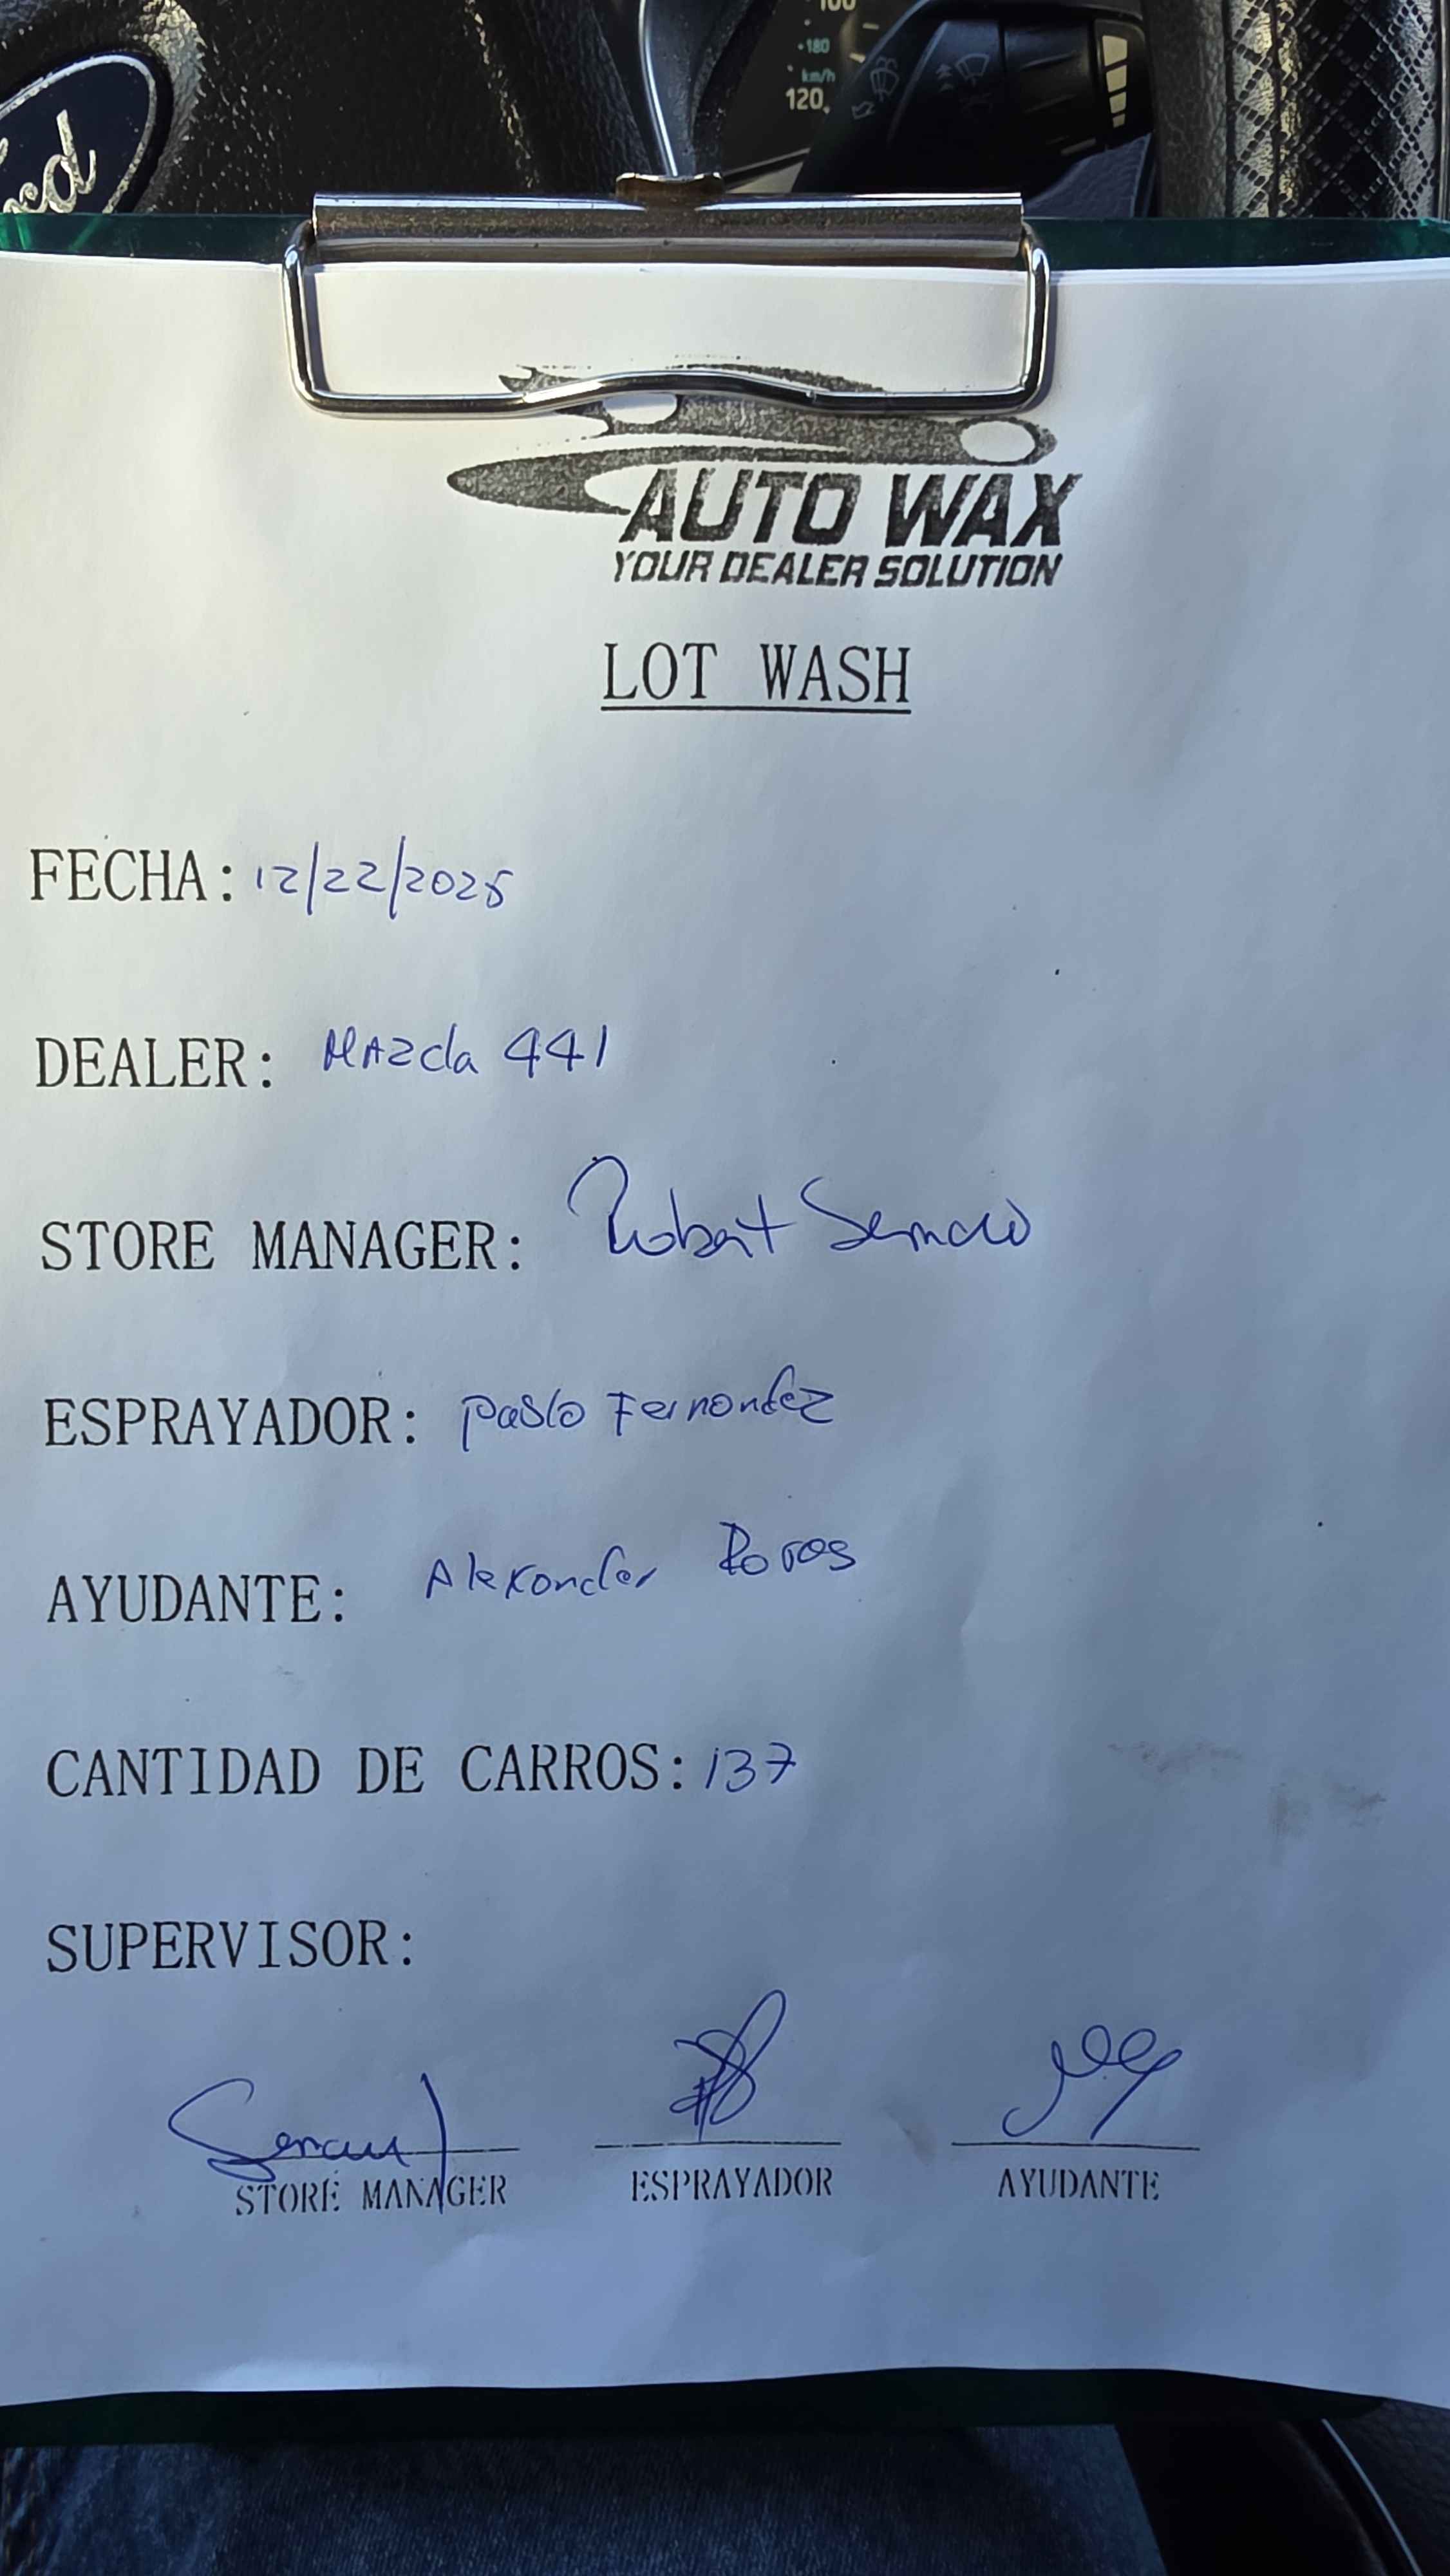 ord
100
180
km/h
120
AUTO WAX
YOUR DEALER SOLUTION
LOT WASH
FECHA: 12/22/2025
DEALER: Mazda 441
STORE MANAGER: Robert
ESPRAYADOR: Pablo Fernandez
AYUDANTE: Alexander
CANTIDAD DE CARROS: 137
SUPERVISOR:
STORE MANAGER ESPRAYADOR AYUDANTE